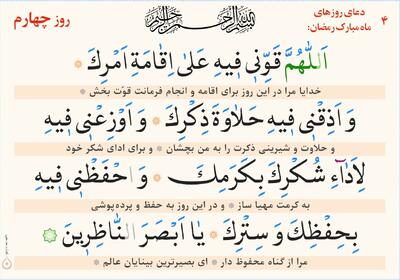 ۴
دعای روزهای
ماه مبارک رمضان:
بسم الله الرحمن الرحیم
روز چهارم
اَللّٰهُمَّ قَوِّنی فیهِ عَلیٰ اِقامَةِ اَمْرِكَ
خدایا مرا در این روز برای اقامه و انجام فرمانت قوّت بخش
وَ اَذِقْنی فیهِ حَلاوَةَ ذِكْرِكَ وَ اَوْزِعْنی فیهِ
و حلاوت و شیرینی ذکرت را به من بچشان * و برای ادای شکر خود
لِاَداۤءِ شُكْرِكَ بِكَرَمِكَ وَ احْفَظْنی فیهِ
به کرمت مهیا ساز * و در این روز به حفظ و پرده‌پوشی
بِحِفْظِكَ وَ سِتْرِكَ یا اَبْصَرَ النّاظِرینَ
مرا از گناه محفوظ دار * ای بصیرترین بینایان عالم